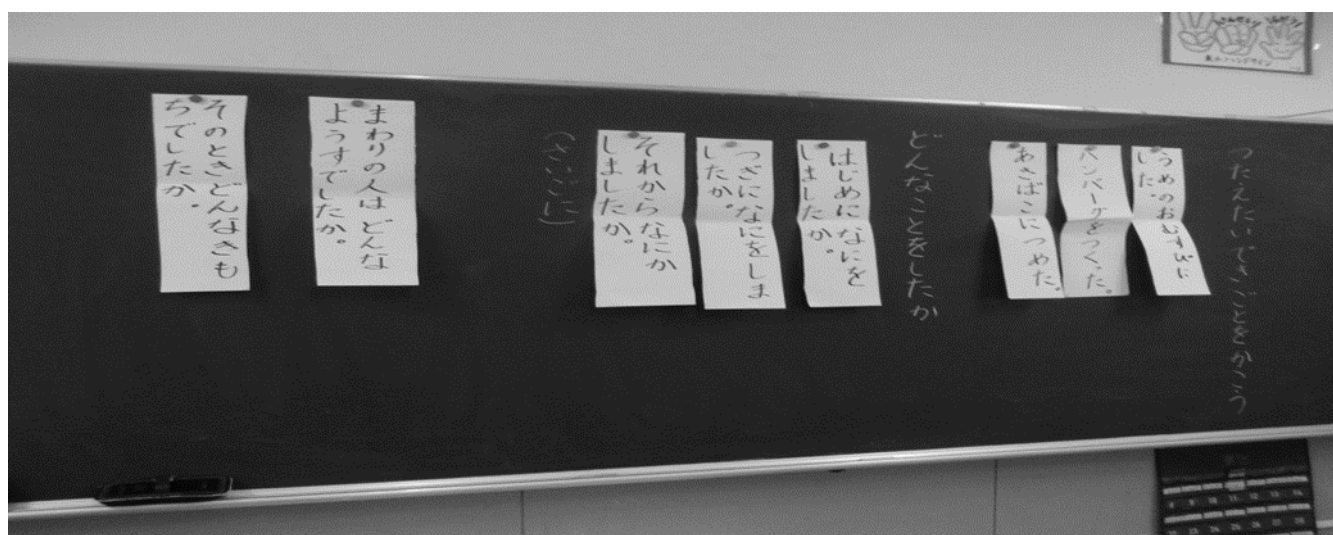 つたえたいできごとをかこう
うめのおむすびに
した。
ハンバーグをつくった。
あきばこにつめた。
どんなことをしたか
はじめになにを
しましたか。
つぎになにをしま
したか。
それからなにか
しましたか。
(さいごに)
まわりの人はどんな
ようすでしたか。
そのときどんなきも
ちでしたか。